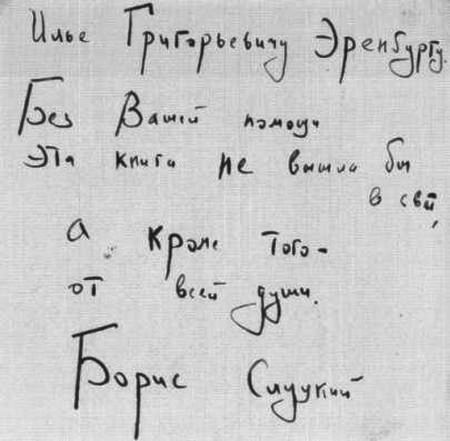 Илье Григорьевичу Эренбургу.
Без Вашей помощи
эта книга не вышла бы
в свет,
а кроме того -
от всей души.
Борис Слуцкий